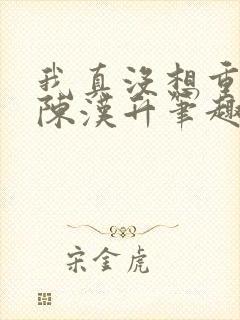 我真没想重
陈汉升笔趣
宋金虎